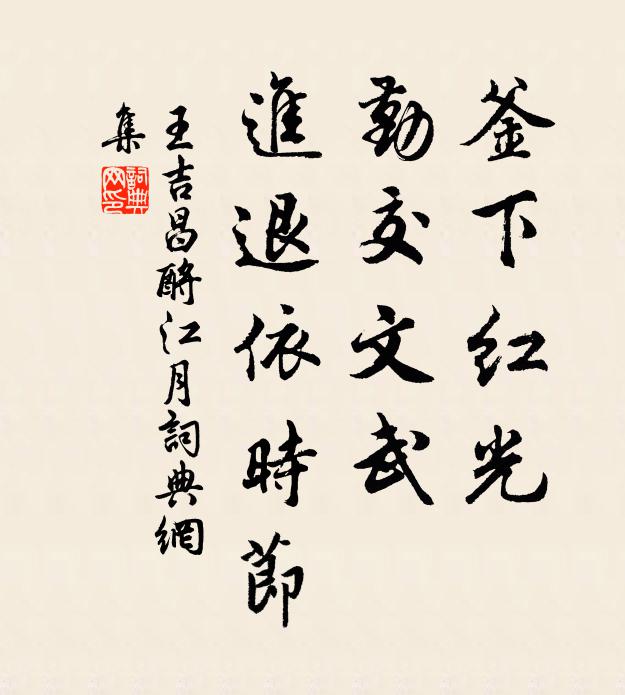 釜下红光
勤交文武
進退依時節
王吉昌酹江月詞典網
集
詞典
网印